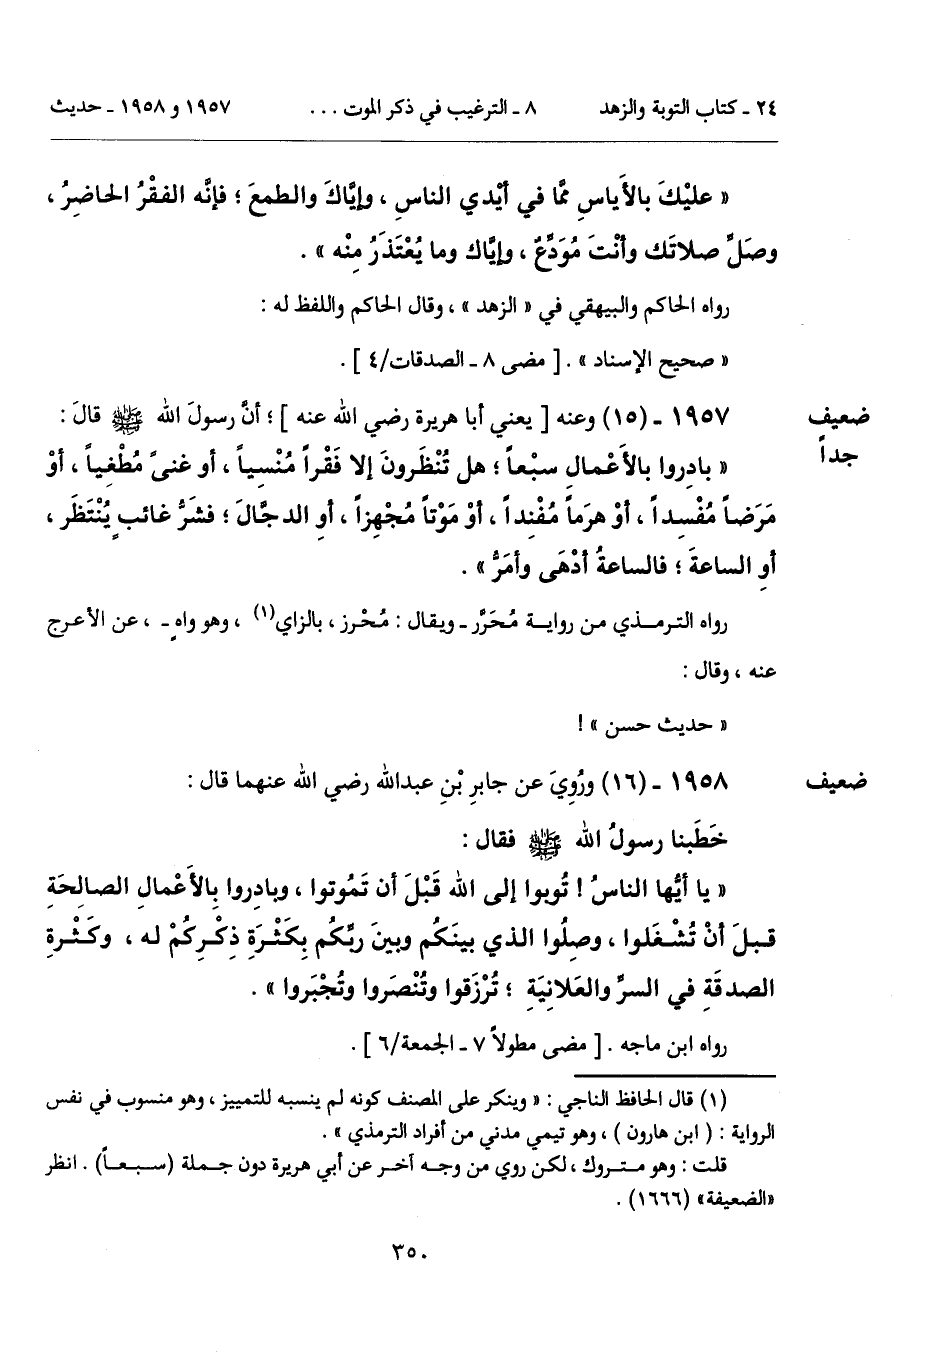 ٢٤ ـ كتاب التوبة والزهد ٨ ـ الترغيب في ذكر الموت ... ١٩٥٧ و ١٩٥٨ ـ حديث
« عليْكَ بالأياسِ مَّا في أيْدي الناسِ ، وإيَّاكَ والطمعَ ؛ فإنَّه الفقْرُ الحاضِرُ ،
وصَلِّ صلاتَك وأنْتَ مُوَدِّعٌ ، وإيَّاك وما يُعْتَذَرُ مِنْه » .
رواه الحاكم والبيهقي في « الزهد » ، وقال الحاكم واللفظ له :
« صحيح الإسناد » . [ مضى ٨ ـ الصدقات/٤ ] .
ضعيف جداً ١٩٥٧ ـ (١٥) وعنه [ يعني أبا هريرة رضي الله عنه ] ؛ أنَّ رسولَ الله ﷺ قالَ :
« بادِروا بالأَعْمالِ سبْعاً ؛ هل تُنْظَرونَ إلا فَقْراً مُنْسِياً ، أو غنىً مُطْغِياً ، أوْ
مَرَضاً مُفْسِداً ، أوْ هرَماً مُفْنِداً ، أوْ مَوْتاً مُجْهِزاً ، أوِ الدجَّالَ ؛ فشَرُّ غائبٍ يُنْتَظَر ،
أوِ الساعةَ ؛ فالساعةُ أدْهَى وأمَرُّ » .
رواه الترمذي من رواية مُحَرَّر ـ ويقال : مُحْرز ، بالزاي(١) ، وهو واهٍ ـ ، عن الأعرج
عنه ، وقال :
« حديث حسن » !
ضعيف ١٩٥٨ ـ (١٦) ورُوِيَ عن جابرِ بْنِ عبدالله رضي الله عنهما قال :
خَطَبنا رسولُ الله ﷺ فقال :
« يا أيُّها الناسُ ! تُوبوا إلى الله قَبْلَ أن تَمُوتوا ، وبادِروا بِالأَعْمالِ الصالِحَةِ
قبلَ أنْ تُشْغَلوا ، وصِلُوا الذي بينَكُم وبينَ ربِّكُم بِكَثْرَةِ ذِكْرِكُمْ له ، وكَثْرةِ
الصدقَةِ في السرِّ والعَلانِيَةِ ؛ تُرْزَقوا وتُنْصَروا وتُجْبَروا » .
رواه ابن ماجه . [ مضى مطولاً ٧ ـ الجمعة/٦ ] .
(١) قال الحافظ الناجي : « وينكر على المصنف كونه لم ينسبه للتمييز ، وهو منسوب في نفس
الرواية : ( ابن هارون ) ، وهو تيمي مدني من أفراد الترمذي » .
قلت : وهو متروك ، لكن روي من وجه آخر عن أبي هريرة دون جملة (سبعاً) . انظر
«الضعيفة» (١٦٦٦) .
٣٥٠